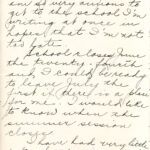 am so very anxious to
get to the school I'm
writing at once in
hopes that I'm not
too late.
School closes June
the twenty-fourth
and I could be ready
to leave July the
first if there is a place
for me. I would like
to know when the
summer session
closes.
I have had very little